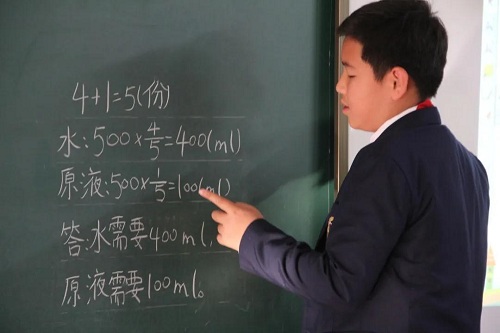 4+1=5(份)
水:500×4/5=400(ml)
原液:500×1/5=100(ml)
答:水需要400ml,
原液需要100ml。